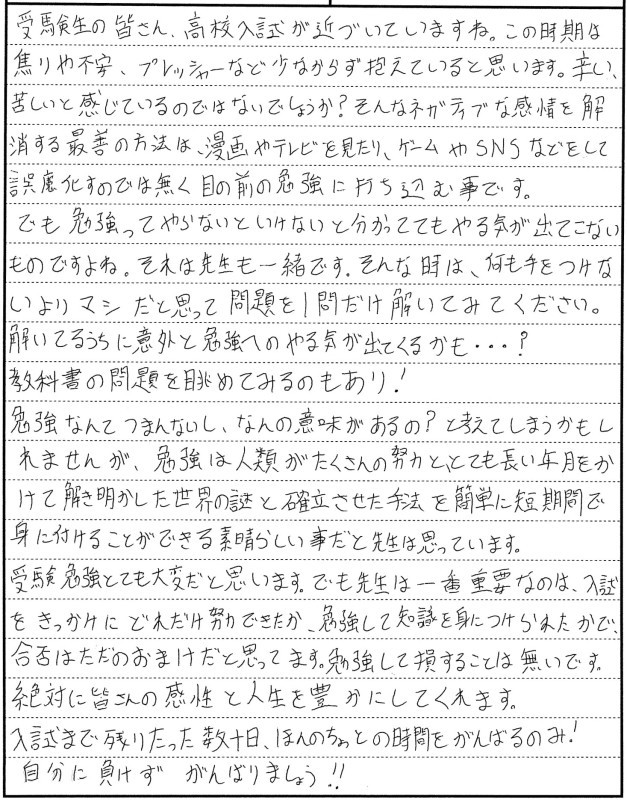 受験生の皆さん、高校入試が近づいていますね。この時期は
焦りや不安、プレッシャーなど少なからず抱えていると思います。辛い、
苦しいと感じているのではないでしょうか?そんなネガティブな感情を解
消する最善の方法は、漫画やテレビを見たり、ゲームやSNSなどをして
誤魔化すのでは無く目の前の勉強に打ち込む事です。
でも勉強ってやらないといけないと分かっててもやる気が出てこない
ものですよね。それは先生も一緒です。そんな時は、何も手をつけな
いよりマシだと思って問題を1問だけ解いてみてください。
解いてるうちに意外と勉強へのやる気が出てくるかも・・・?
教科書の問題を眺めてみるのもあり!
勉強なんてつまんないし、なんの意味があるの?と考えてしまうかもし
れませんが、勉強は人類がたくさんの努力と、とても長い年月をか
けて解き明かした世界の謎と確立させた手法を簡単に短期間で
身に付けることができる素晴らしい事だと先生は思っています。
受験勉強とても大変だと思います。でも先生は一番重要なのは、入試
をきっかけにどれだけ努力できたか、勉強して知識を身につけられたかで、
合否はただのおまけだと思ってます。勉強して損することは無いです。
絶対に皆さんの感性と人生を豊かにしてくれます。
入試まで残りたった数十日、ほんのちょっとの時間をがんばるのみ!
自分に負けず がんばりましょう!!